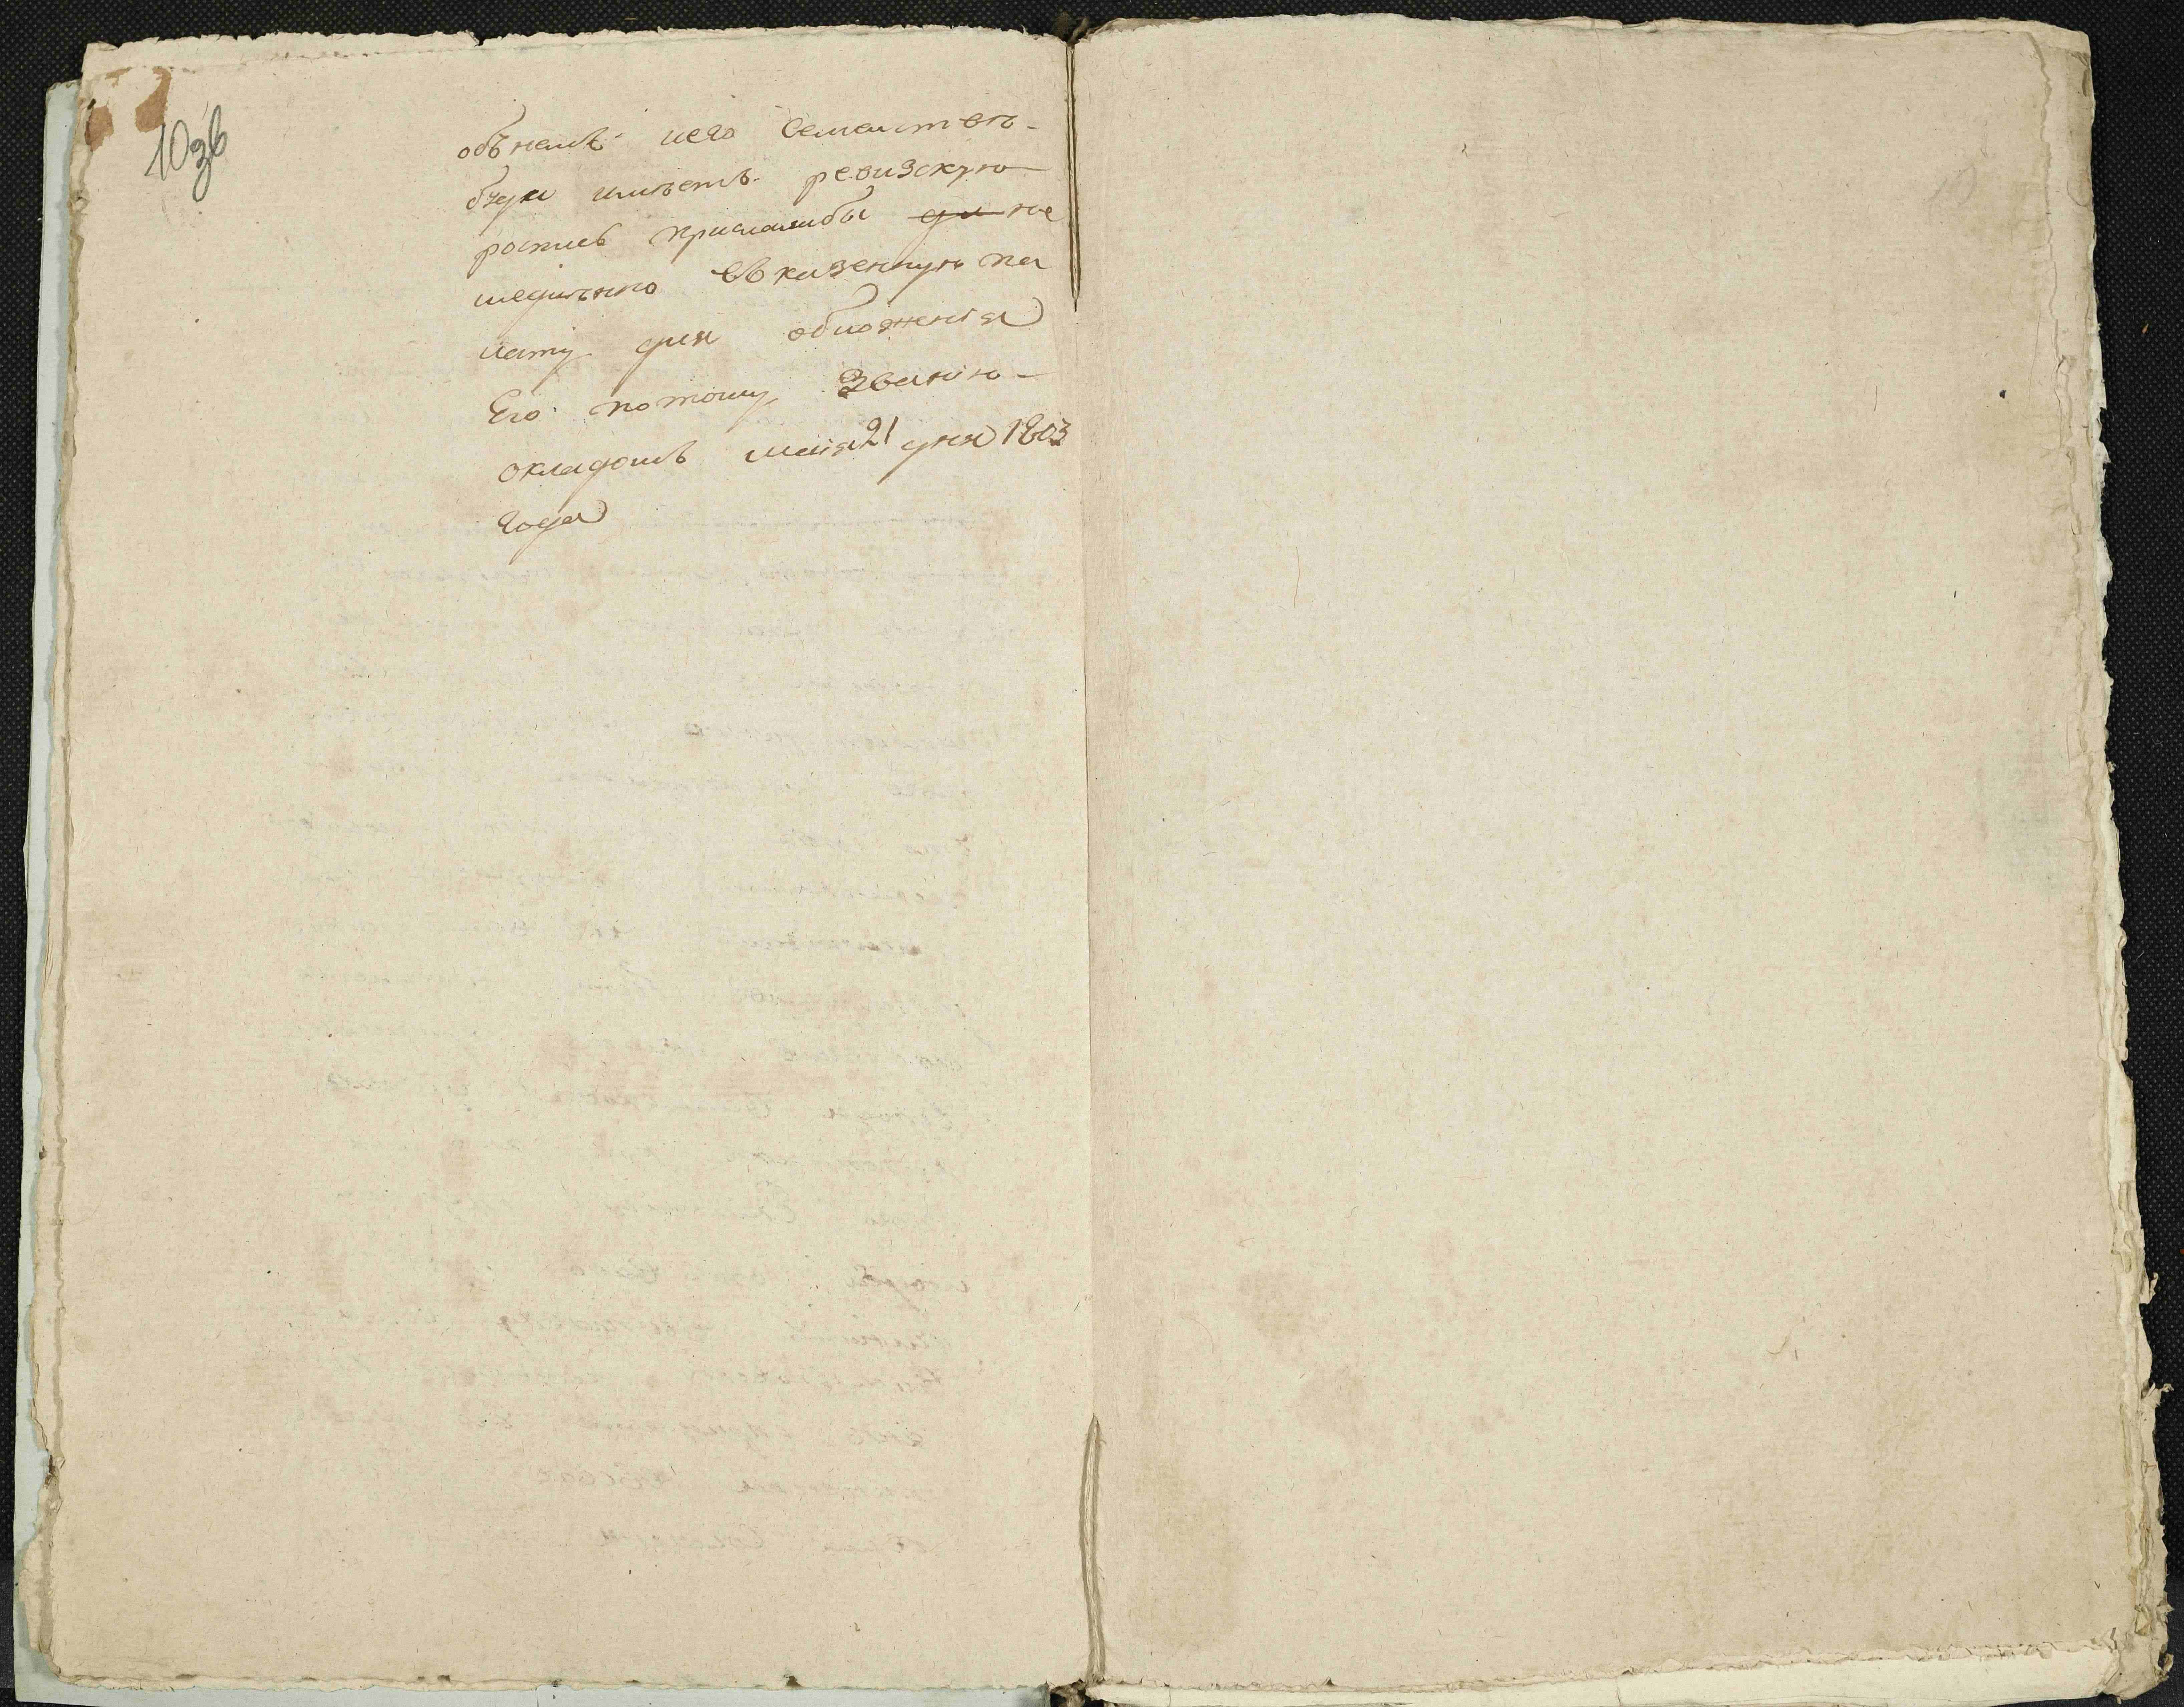 10зв
объ нем и его Семействѣ
буди имѣетъ ревизскую
роспись прислалибы для не
медлѣнно въ казенную па
лату для обложенія
Его потому званію
окладомъ маія 21 дня 1803
года